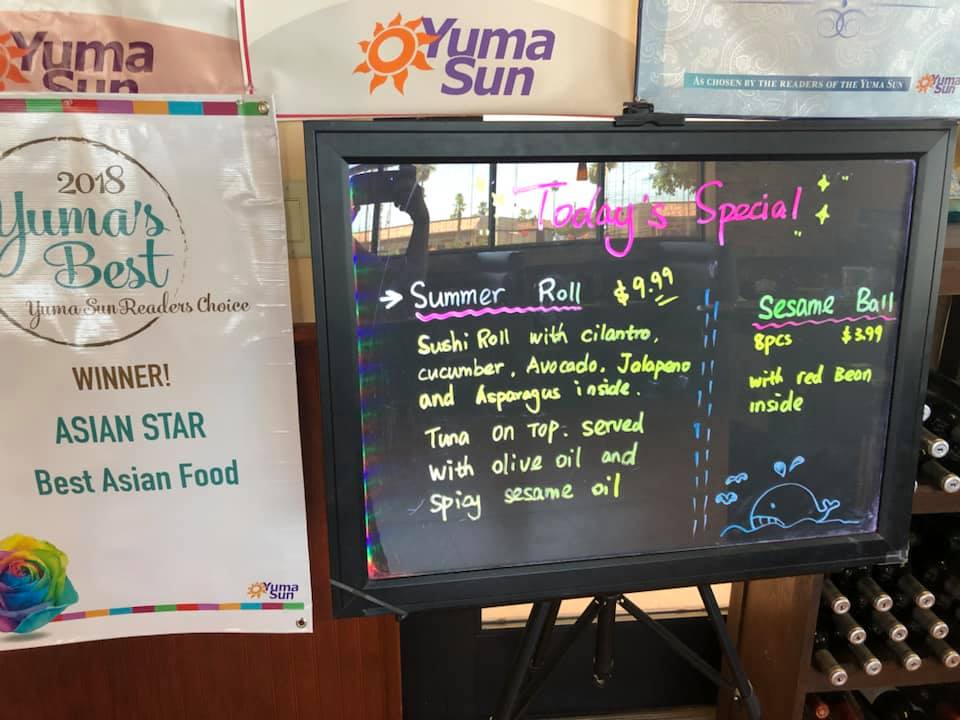 Yuma
Sun
Yuma
Sun
AS CHOSEN BY THE READERS OF THE YUMA SUN
Yuma
Sun
2018
Yuma's
Best
Yuma Sun Readers Choice
WINNER!
ASIAN STAR
Best Asian Food
Yuma
Sun
Today's Special
→ Summer Roll $9.99
Sushi Roll with cilantro,
cucumber, Avocado, Jalapeno
and Asparagus inside.
Tuna on Top. served
with olive oil and
spicy sesame oil
Sesame Ball
8pcs $3.99
with red Bean
inside